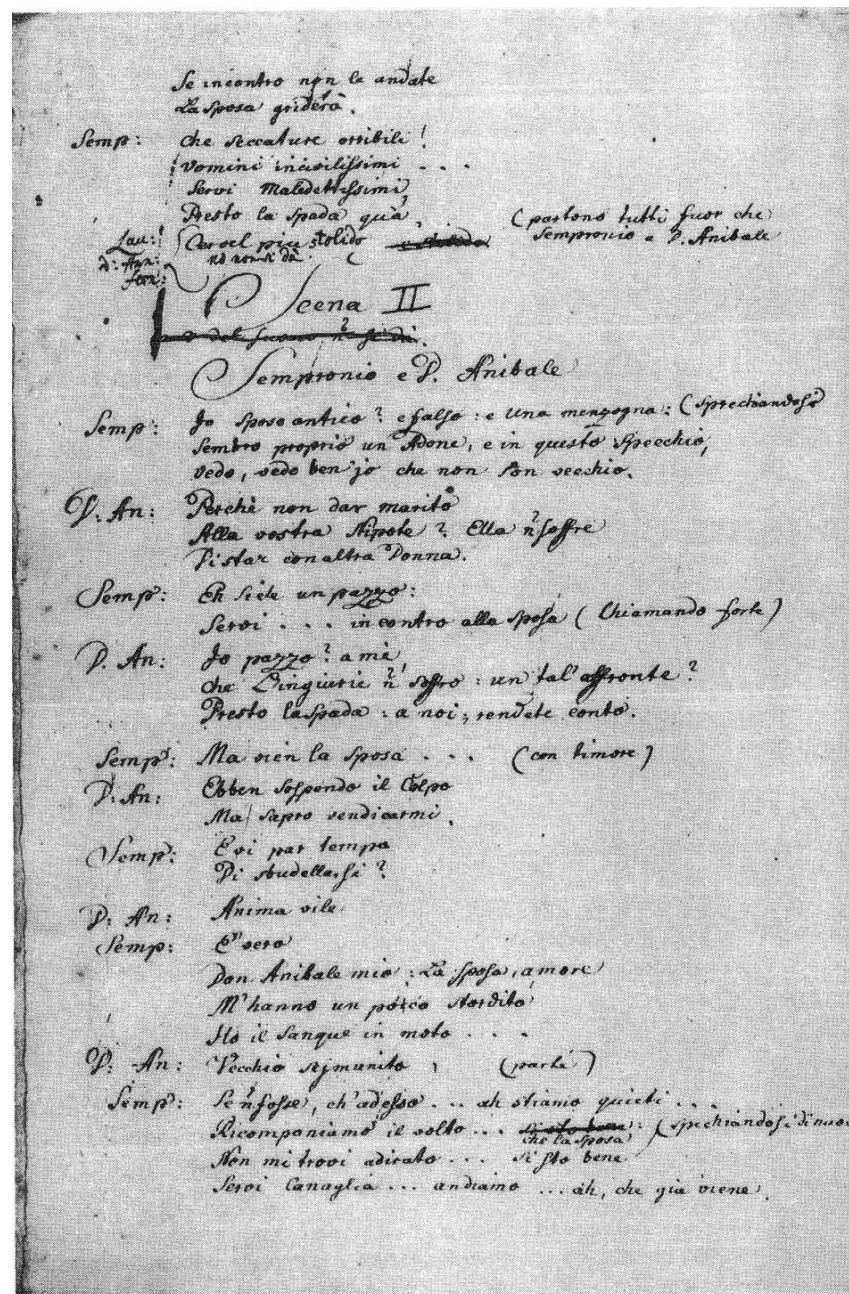 Se incontro non le andate
La Sposa griderà.
Semp: Che seccature orribili!
Vomini incivilissimi . . .
Servi Maledettissimi
Presto la Spada quà (partono tutti fuor che
Sempronio e D. Anibale
Lau:
D: Ann:
più stolido
nò non si dà.
Scena II
Sempronio e D. Anibale
Semp: Io Sposo antico? e falso: e una menzogna: (Specchiandosi
Sembro proprio un' Adone, e in questo Specchio,
Vedo, vedo ben' jo che non Son vecchio.
D. An: Perchè non dar marito
Alla vostra Nipote? Ella ñ soffre
Di star con altra Donna.
Semp: Eh Siete un pazzo:
Servi . . . incontro alla Sposa (Chiamando forte)
D. An: Jo pazzo? a mè,
che L'ingiurie ñ Soffro: un tal' affronte?
Presto la Spada: a noi, rendete conto.
Semp: Ma vien la Sposa . . . (con timore)
D. An: Ebben Sospendo il Colpo
Ma Sapro vendicarmi.
Semp: E vi par tempo
Di sbudellarsi?
D: An: Anima vile
Semp: E' vero
Don Anibale mio: La Sposa, amore
M'hanno un poco Stordito
Ho il Sangue in moto . . . .
D. An: Vecchio Sijmunito, (parte)
Semp: Se ñ fosse, ch'adesso . . . ah stiamo quieti . . .
Ricomponiamo il volto . . . che la Sposa (Spechiandosi di nuovo
Non mi trovi adirato . . . Si Sto bene
Servi Canaglia . . . andiamo . . . ah, che già viene.